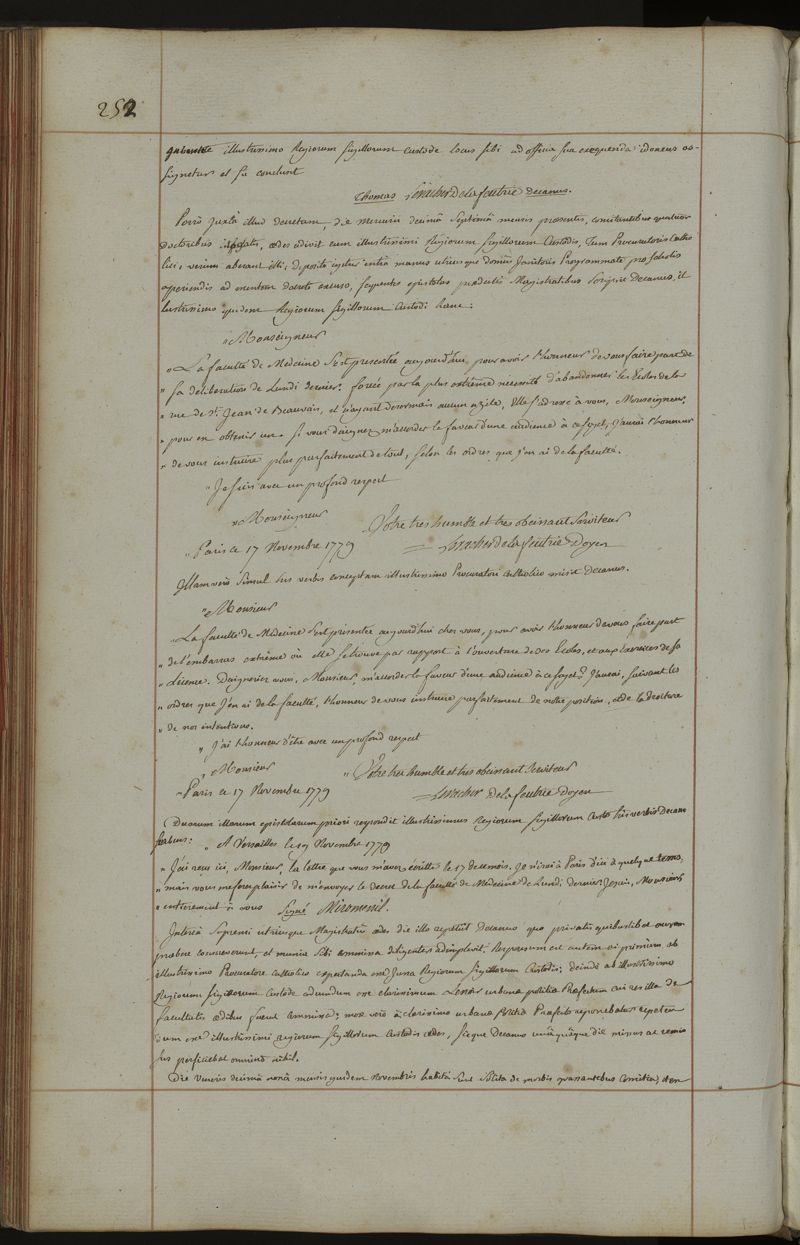 252
jubente illustrissimo Regiorum sigillorum custode locus sibi ad officia sua exequenda idoneus as-
signetur et sic conclusit
Thomas Levacher De la feutrie decanus.
Porrò juxtà illud decretum, die mercurii decimâ septimâ mensis praesentis, comitantibus quatuor
doctoribus adivit cum illustrissimi Regiorum sigillorum Custodis, tum Procuratoris Catho
lici, verum aberant illi; deposito igitur intrà manus utriusque domûs Janitoris Programmate pro scholis
aperiendis ad mentem decreti excuso, sequentes epistolas praedictis Magistratibus scripsit Decanus, il
lustrissimo quidem Regiorum sigillorum Custodi hanc:
" Monseigneur
" La faculté de Médecine s'est presentée aujourd'hui pour avoir l'honneur de vous faire part de
" sa deliberation de Lundi dernier. forcée par la plus extrême necessité d'abandonner les Ecoles de la
" rue de St. Jean de Beauvais, et n'ayant desormais aucun azile, Elle s'adresse à vous, Monseigneur,
" pour en obtenir un. si vous daignez m'accorder la faveur d'une audience à ce sujet, j'aurai l'honneur
" de vous instruire plus parfaitement de tout, selon les ordres que j'en ai de la faculté.
" Je suis avec un profond respect
" Monseigneur
Votre tres humble et tres obeissant Serviteur
" Paris ce 17 Novembre 1779
= Levacher de la feutrie Doyen
Illam verò simul his verbis conceptam illustrissimo Procuratori catholico misit Decanus.
" Monsieur
" La faculté de Médecine s'est présentée aujourd'hui chez vous, pour avoir l'honneur de vous faire part
" de l'embarras extrême où elle se trouve par rapport à l'ouverture de ses Ecoles, et aux exercices de sa
" Licence. Daigneriez vous, Monsieur, m'accorder la faveur d'une audience à ce sujet? J'aurai, suivant les
" ordres que j'en ai de la faculté, l'honneur de vous instruire parfaitement de notre position, et de la droiture
" de nos intentions.
" J'ai l'honneur d'être avec un profond respect
" Monsieur
" Votre tres humble et tres obeissant Serviteur
" Paris ce 17 Novembre 1779
= Levacher de la feutrie Doyen
Duarum illarum epistolarum priori respondit illustrissimus Regiorum sigillorum Custos his verbis Decano
scribens: " A Versailles le 19 Novembre 1779
" J'ai reçu ici, Monsieur, la lettre que vous m'avez écritte le 17 de ce mois. Je n'irai à Paris d'ici à quelque tems,
" mais vous me ferez plaisir de m'envoyer le decret de la faculté de Médecine de Lundi dernier. Je suis, Monsieur
" entierement à vous Signé Miromenil.
Intereà supremi utriusque Magistratûs aedes die illo repetiit Decanus quo privatis quibuslibet aurem
praebere consueverunt, et munia sibi commissa diligenter adimplevit. Responsum est autem ei primùm ab
illustrissimo Procuratore catholico expectanda esse Jussa Regiorum sigillorum Custodis; deinde ab illustrissimo
Regiorum sigillorum Custode adeundum esse clarissimum Lenoir urbanae politiae Praefectum cui res illa de
facultatis aedibus fuerat commissa; mox verò à clarissimo urbanae politiae Praefecto reponebatur repeten
dum esse illustrissimi regiorum sigillorum Custodis aedes, sicque Decanus unâquâque die missus ac remis
sus perficiebat omninò nihil.
Die veneris decimâ nonâ mensis ejusdem novembris habita sunt solita de morbis grassantibus Comitia, et en